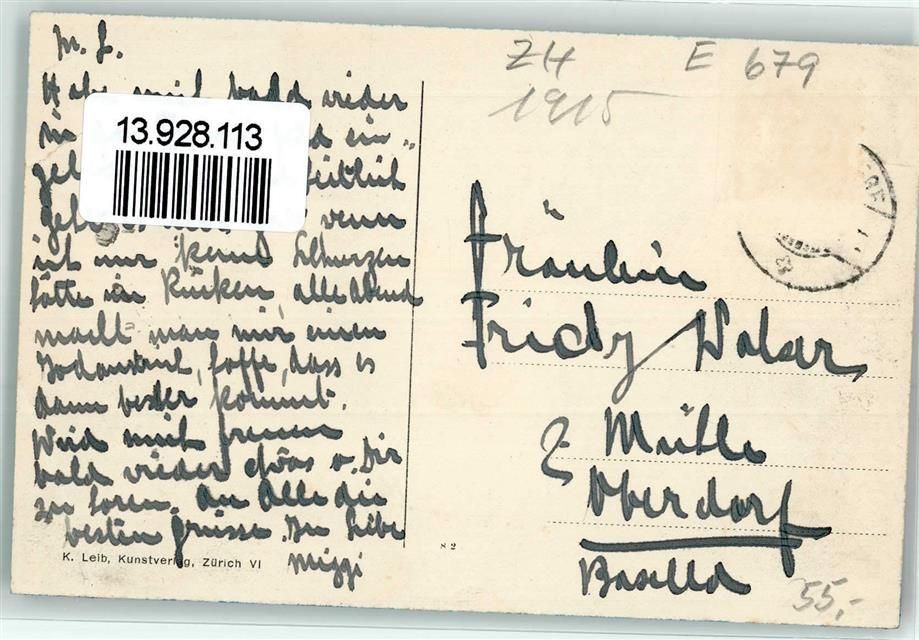 M. L.
Habe mich bald wieder
in ein-
heitlich
wenn
ich nur keine Schmerzen
hätte im Rücken, alle Abend
macht man mir einen
Jodanstrich, hoffe, dass es
dann besser kommt.
Wird mich freuen
bald wieder etwas v. Dir
zu hören. An Alle die
besten Grüsse. In Liebe
Miggi
K. Leib, Kunstverlag, Zürich VI
13.928.113
82
ZH E 679
1915
Fräulein
Fridy
z. Mühle
Oberdorf
Baselld
55,-